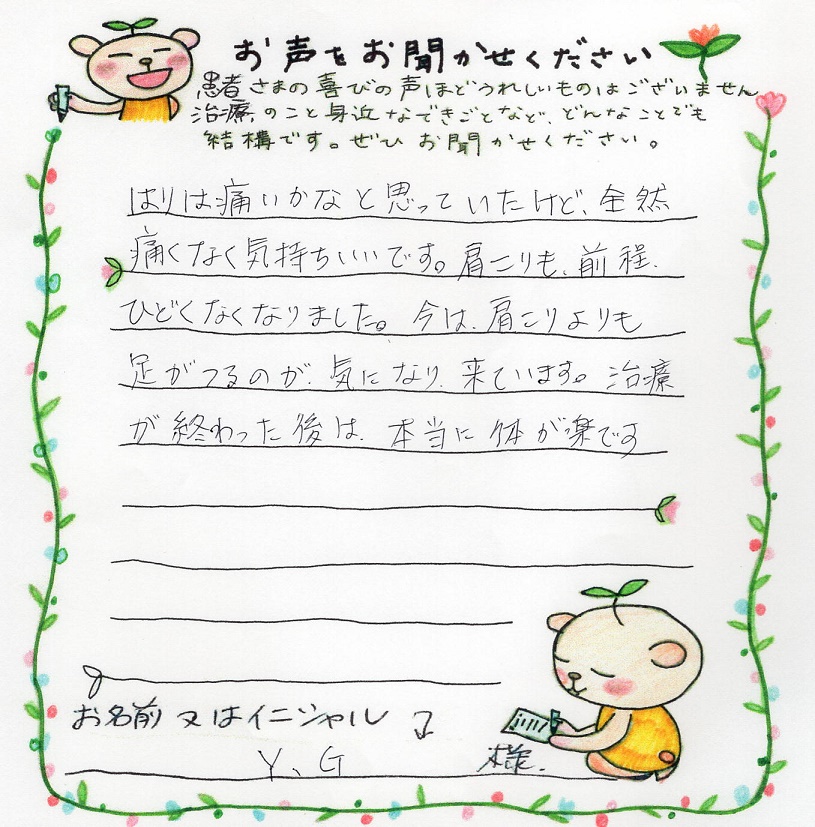 お声をお聞かせください
患者さまの喜びの声ほどうれしいものはございません
治療のこと身近なできごとなど、どんなことでも
結構です。ぜひお聞かせください。
はりは痛いかなと思っていたけど、全然
痛くなく気持ちいいです。肩こりも、前程、
ひどくなくなりました。今は、肩こりよりも
足がつるのが、気になり、来ています。治療
が終わった後は、本当に体が楽です
お名前又はイニシャル
Y、G 様.